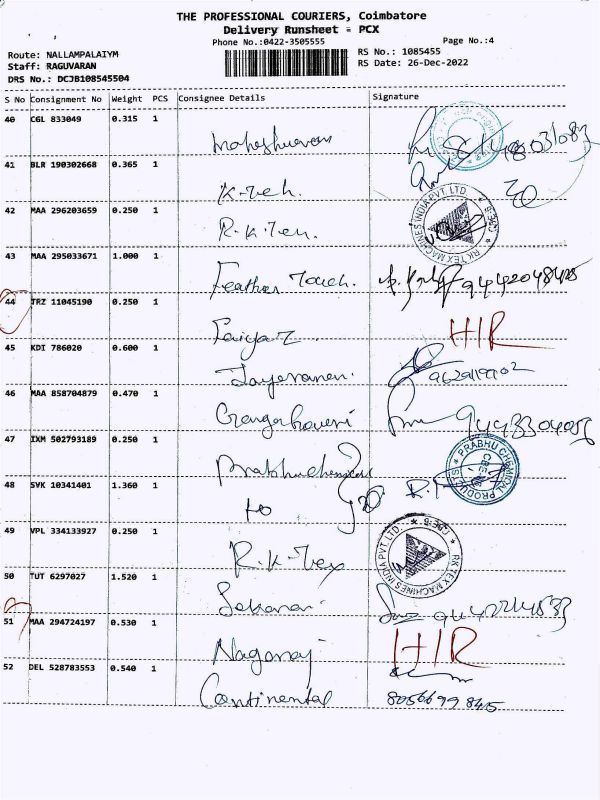 THE PROFESSIONAL COURIERS, Coimbatore
Delivery Runsheet = PCX
Phone No.:0422-3505555
Page No.:4
Route: NALLAMPALAIYM
RS No.: 1085455
Staff: RAGUVARAN
RS Date: 26-Dec-2022
DRS No.: DCJB108545504
S No Consignment No Weight PCS Consignee Details Signature
40 CGL 833049 0.315 1
Maheshwaran
41 BLR 190302668 0.365 1
K-Teh.
42 MAA 296203659 0.250 1
R.K.Teh.
RK TEX MACHINES INDIA PVT. LTD. * CBE-6 *
43 MAA 295033671 1.000 1
Feather Touch. 9442048425
44 TRZ 11045190 0.250 1
Faiyaz H/R
45 KDI 786020 0.600 1
Jayaraman.
46 MAA 858704879 0.470 1
9443304055
47 IXM 502793189 0.250 1
Prabhuchemicals
PRABHU CHEMICAL PRODUCTS
48 SVK 10341401 1.360 1
to
49 VPL 334133927 0.250 1
R.K-Tex
RK TEX MACHINES INDIA PVT. LTD. * CBE-6 *
50 TUT 6297027 1.520 1
51 MAA 294724197 0.530 1
Nagaraj H/R
52 DEL 528783553 0.540 1
Continental 8056699845